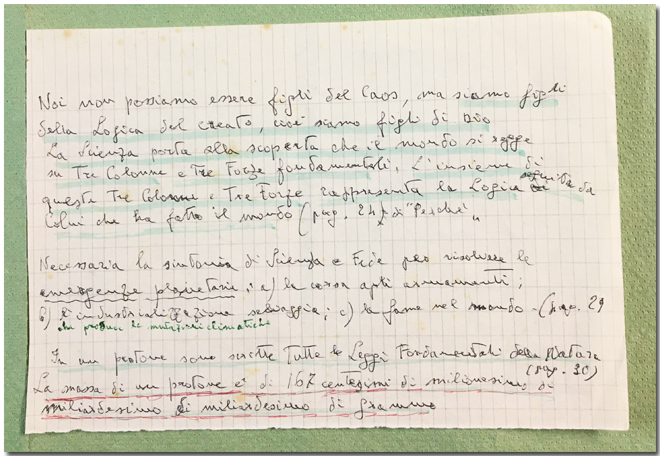 Noi non possiamo essere figli del Caos, ma siamo figli
della Logica del creato, cioè siamo figli di Dio
La Scienza porta alla scoperta che il mondo si regge
su Tre Colonne e Tre Forze fondamentali. L'insieme di
queste Tre Colonne e Tre Forze rappresenta la Logica seguita da
Colui che ha fatto il mondo (pag. 24 di "Perché"
Necessaria la sintonia di Scienza e Fede per risolvere le
emergenze planetarie: a) la corsa agli armamenti;
b) l'industrializzazione selvaggia; c) la fame nel mondo - (pag. 29
che produce le mutazioni climatiche
In un protone sono scritte Tutte le Leggi Fondamentali della Natura
(pag. 30)
La massa di un protone è di 167 centesimi di milionesimo di
miliardesimo di miliardesimo di grammo